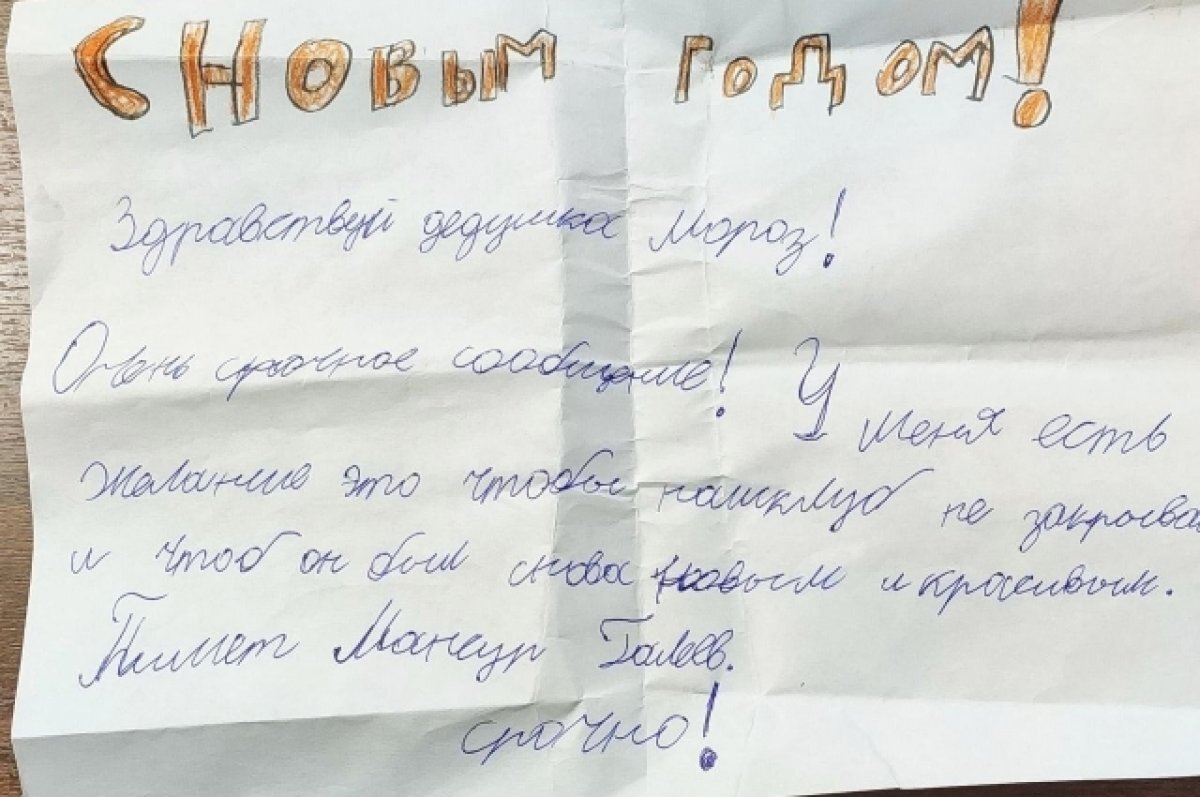 С НОВЫМ ГОДОМ!
Здравствуй дедушка Мороз!
Очень срочное сообщение! У меня есть
желание это чтобы наш клуб не закрыва
и чтоб он был снова новым и красивым.
Пишет Мансур Галеев.
срочно!